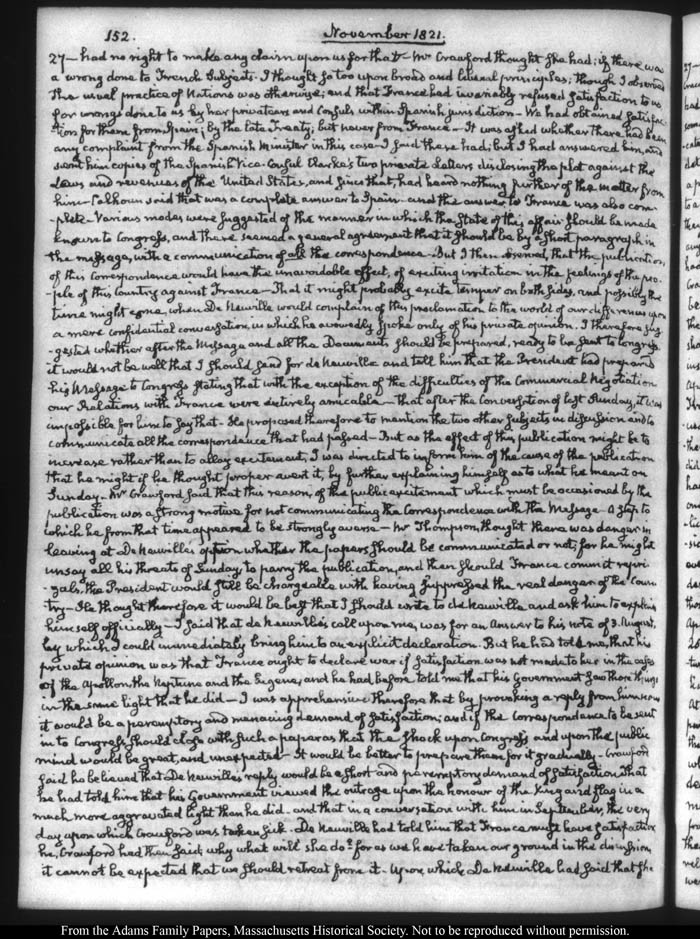 152. November 1821.
27 — had no right to make any claim upon us for that — Mr Crawford thought she had; if there was
a wrong done to French Subjects. I thought so too upon broad and liberal principles; though I observed
the usual practice of Nations was otherwise; and that France had invariably refused satisfaction to us
for wrongs done to us by her privateers and Consuls within Spanish jurisdiction — We had obtained satisfac-
-tion for them from Spain; by the late Treaty; but never from France — It was asked whether there had been
any complaint from the Spanish Minister in this case — I said there had; but I had answered him, and
sent him copies of the Spanish Vice-Consul Clarke's two private Letters disclosing the plot against the
Laws and revenues of the United States, and since that, had heard nothing further of the matter from
him — Calhoun said that was a complete answer to Spain — and the answer to France was also com-
-plete — Various modes were suggested of the manner in which the State of this affair should be made
known to Congress, and there seemed a general agreement that it should be by a short paragraph in
the message, with a communication of all the correspondence — But I then observed, that the publication
of this Correspondence would have the unavoidable effect, of exciting irritation in the feelings of the peo-
-ple of this Country against France — That it might probably excite temper on both sides, and possibly the
time might come, when De Neuville would complain of this proclamation to the world of our differences upon
a mere confidential conversation, in which he avowedly spoke only of his private opinion. I therefore sug-
-gested whether after the Message and all the Documents should be prepared, ready to be sent to Congress
it would not be well that I should send for de Neuville and tell him that the President had prepared
his Message to Congress stating that with the exception of the difficulties of the Commercial Negotiation
our Relations with France were entirely amicable — That after the Conversation of last Sunday, it was
impossible for him to say that — He proposed therefore to mention the two other subjects in discussion and to
communicate all the correspondence that had passed — But as the effect of this publication might be to
increase rather than to allay excitement, I was directed to inform him of the cause of the publication
that he might if he thought proper avert it, by further explaining himself as to what he meant on
Sunday. Mr Crawford said that this reason, of the public excitement which must be occasioned by the
publication was a strong motive for not communicating the Correspondence with the Message — a step to
which he from that time appeared to be strongly averse — Mr Thompson, thought there was danger in
leaving at De Neuville's option whether the papers should be communicated or not; for he might
unsay all his threats of Sunday, to parry the publication, and then should France commit repri-
-zals, the President would still be chargeable with having suppressed the real danger of the Coun-
try — He thought therefore it would be best that I should write to de Neuville and ask him to explain
himself officially — I said that de Neuville's call upon me, was for an answer to his note of 3. August,
by which I could immediately bring him to an explicit declaration. But he had told me, that his
private opinion was that France ought to declare war if satisfaction was not made to her in the cases
of the Apollon, the Neptune and the Eugene, and he had before told me that his Government saw those things
in the same light that he did — I was apprehensive therefore that by provoking a reply from him now
it would be a peremptory and menacing demand of satisfaction; and if the Correspondence to be sent
in to Congress should close with such a paper as that the shock upon Congress, and upon the public
mind would be great, and unexpected — It would be better to prepare them for it gradually — Crawford
said he believed that De Neuville's reply, would be a short and peremptory demand of satisfaction. That
he had told him that his Government viewed the outrage upon the honour of the King and flag in a
much more aggravated light than he did. and that in a conversation with him in September, the very
day upon which Crawford was taken sick — De Neuville had told him that France must have satisfaction
he, Crawford had then said; why what will she do? for as we have taken our ground in the discussion,
it cannot be expected that we should retreat from it — Upon which De Neuville had said that she
From the Adams Family Papers, Massachusetts Historical Society. Not to be reproduced without permission.